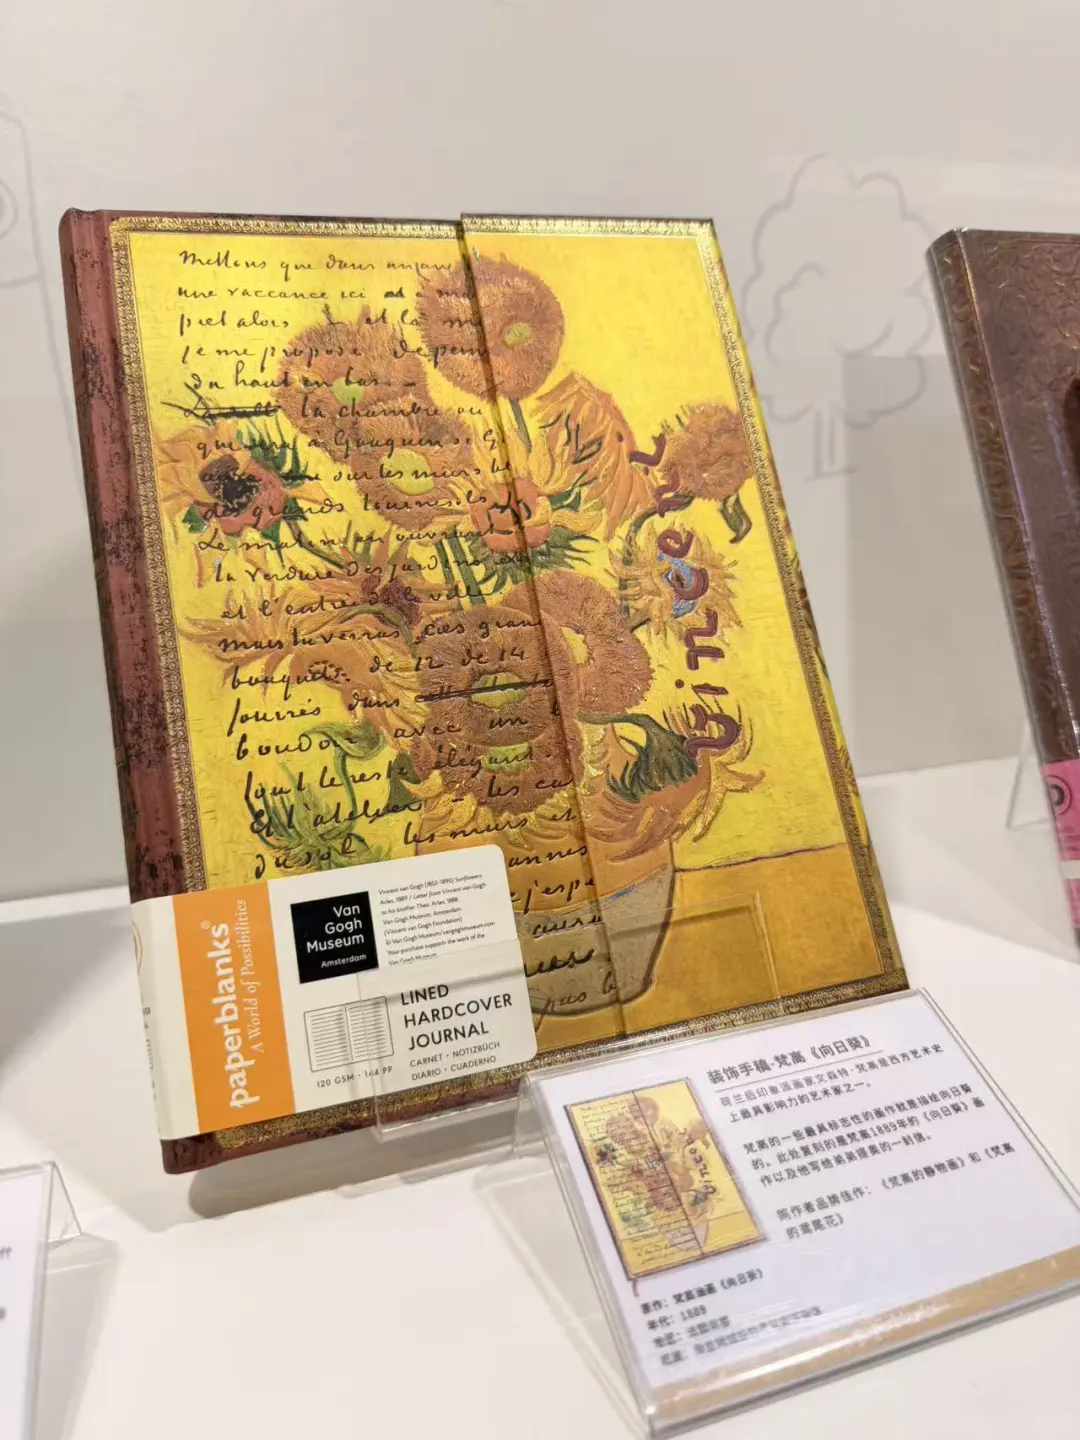 Mettons que dans
une vaccance ici
piet alors et là
je me propose de
du haut en bas
la chambre ou
à Gauguin
sur les murs
des grands
Le matin en ouvrant
la verdure des
et l'entrée de la
mais tu verras ces gran
bouquets de 12 de 14
fourrés dans
boudoir avec un
tout le reste élégant
Et l'atelier les ca
du sol les murs et
Vincent
paperblanks®
A World of Possibilities
Van
Gogh
Museum
Amsterdam
Vincent van Gogh (1853–1890) Sunflowers
Arles, 1889 / Letter from Vincent van Gogh
to his brother Theo, Arles, 1888
Van Gogh Museum, Amsterdam
(Vincent van Gogh Foundation)
© Van Gogh Museum/vangoghmuseum.com
Your purchase supports the work of the
Van Gogh Museum
LINED
HARDCOVER
JOURNAL
CARNET · NOTIZBUCH
DIARIO · CUADERNO
120 GSM · 144 PP
装饰手稿·梵高《向日葵》
荷兰后印象派画家文森特·梵高是西方艺术史
上最具影响力的艺术家之一。
梵高的一些最具标志性的画作就是描绘向日葵
的。此处复刻的是梵高1889年的《向日葵》画
作以及他写给弟弟提奥的一封信。
同作者品牌佳作：《梵高的静物画》和《梵高
的鸢尾花》
原作：梵高油画《向日葵》
年代：1889